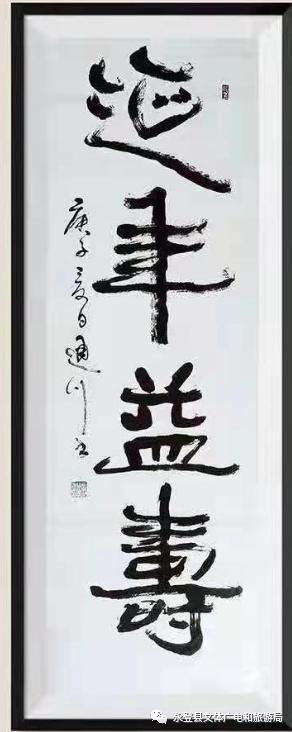 延年益壽
庚子夏日通川书
永登县文体广电和旅游局